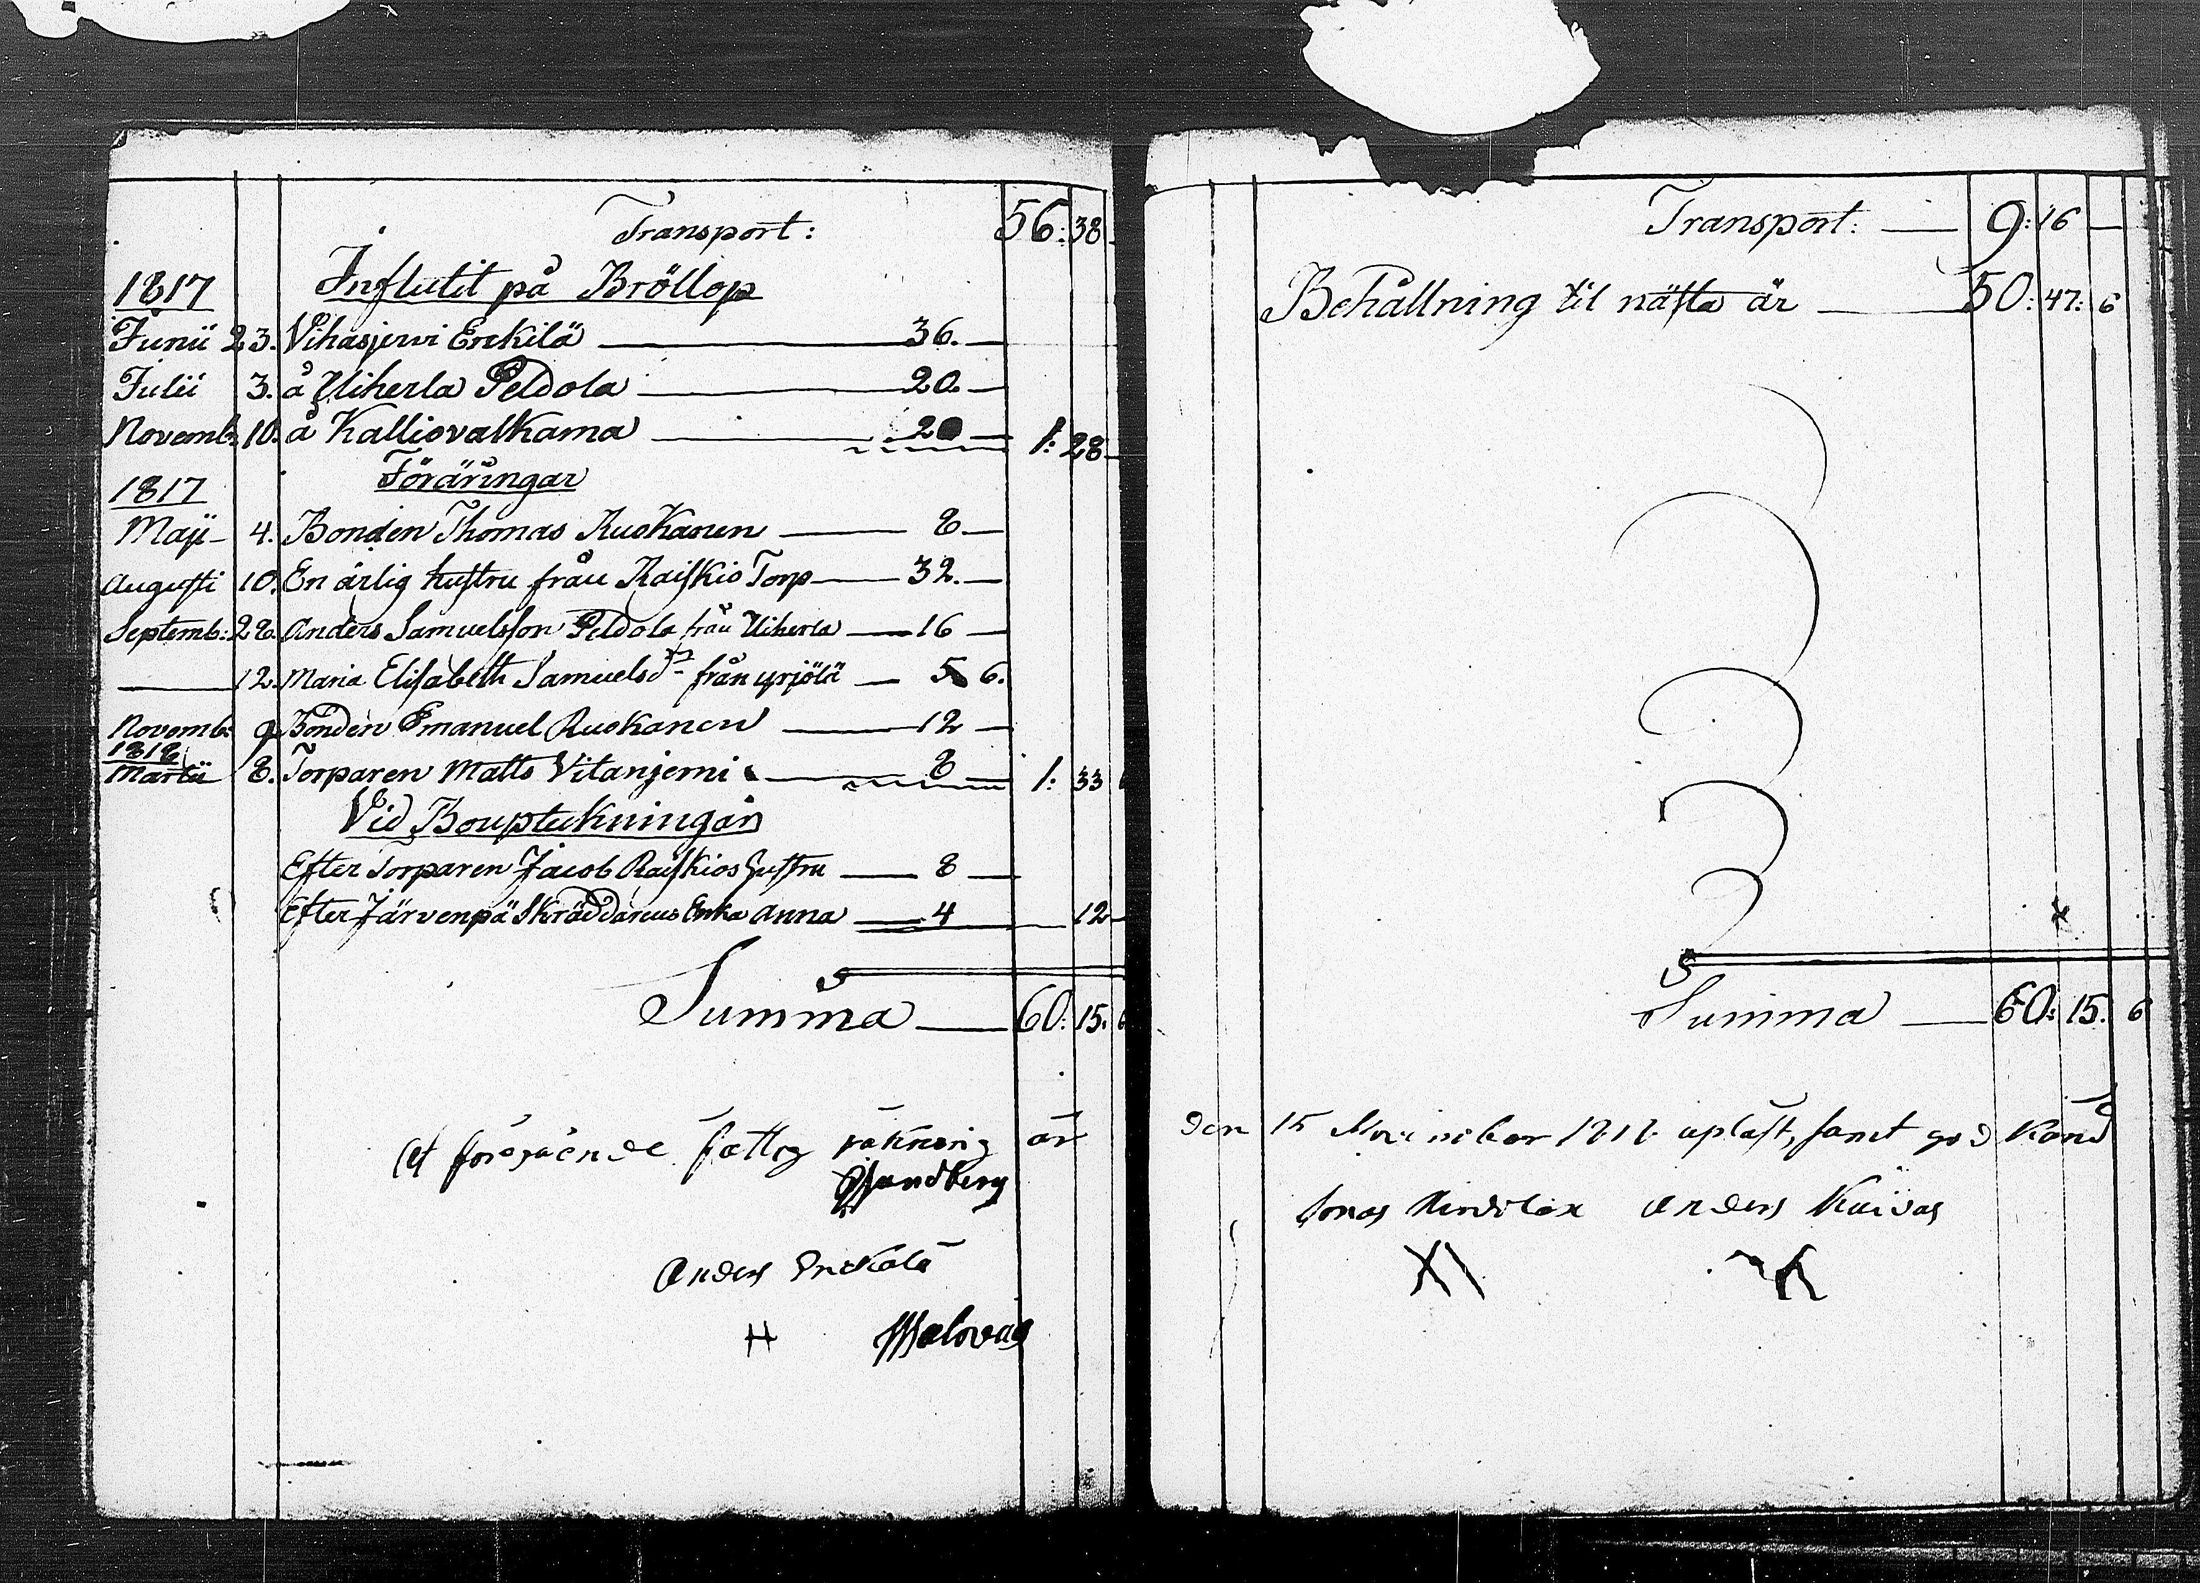 Transport: 56: 38 —
1817 Influtit på Bröllop
Junii 23. Vihasjerwi Erckilä — 36. —
Julii 3. å Uiherla Peldola — 20. —
Novemb: 10. å Kalliovalkama — 20 — 1: 28 —
1817 Föräringar
Maji 4. Bonden Thomas Ruokanen — 8 —
Augusti 10. En ärlig hustru från Raiskio Torp — 32. —
Septemb: 28. Anders Samuelsson Peldola från Uiherla — 16 —
— 12. Maria Elisabeth Samuelsdr från Yrjölä — 5 6.
Novemb: 9. Bonden Emanuel Ruokanen — 12 —
1818
Martii 8. Torparen Matts Vitanjemi — 8 — 1: 33 6
Vid Bouptekningar
Efter Torparen Jacob Raiskios Hustru — 8 —
Efter Järvenpä Skräddarens Enka Anna — 4 12 —
Summa — 60: 15. 6
at föregående fattig räkning är
Sandberg
Anders Erckälä
H
Transport: — 9: 16 —
Behållning til nästa år — 50: 47: 6
Summa — 60: 15. 6
den 15 November 1818 upläst, samt god känd
Jonas Anders Kuivas